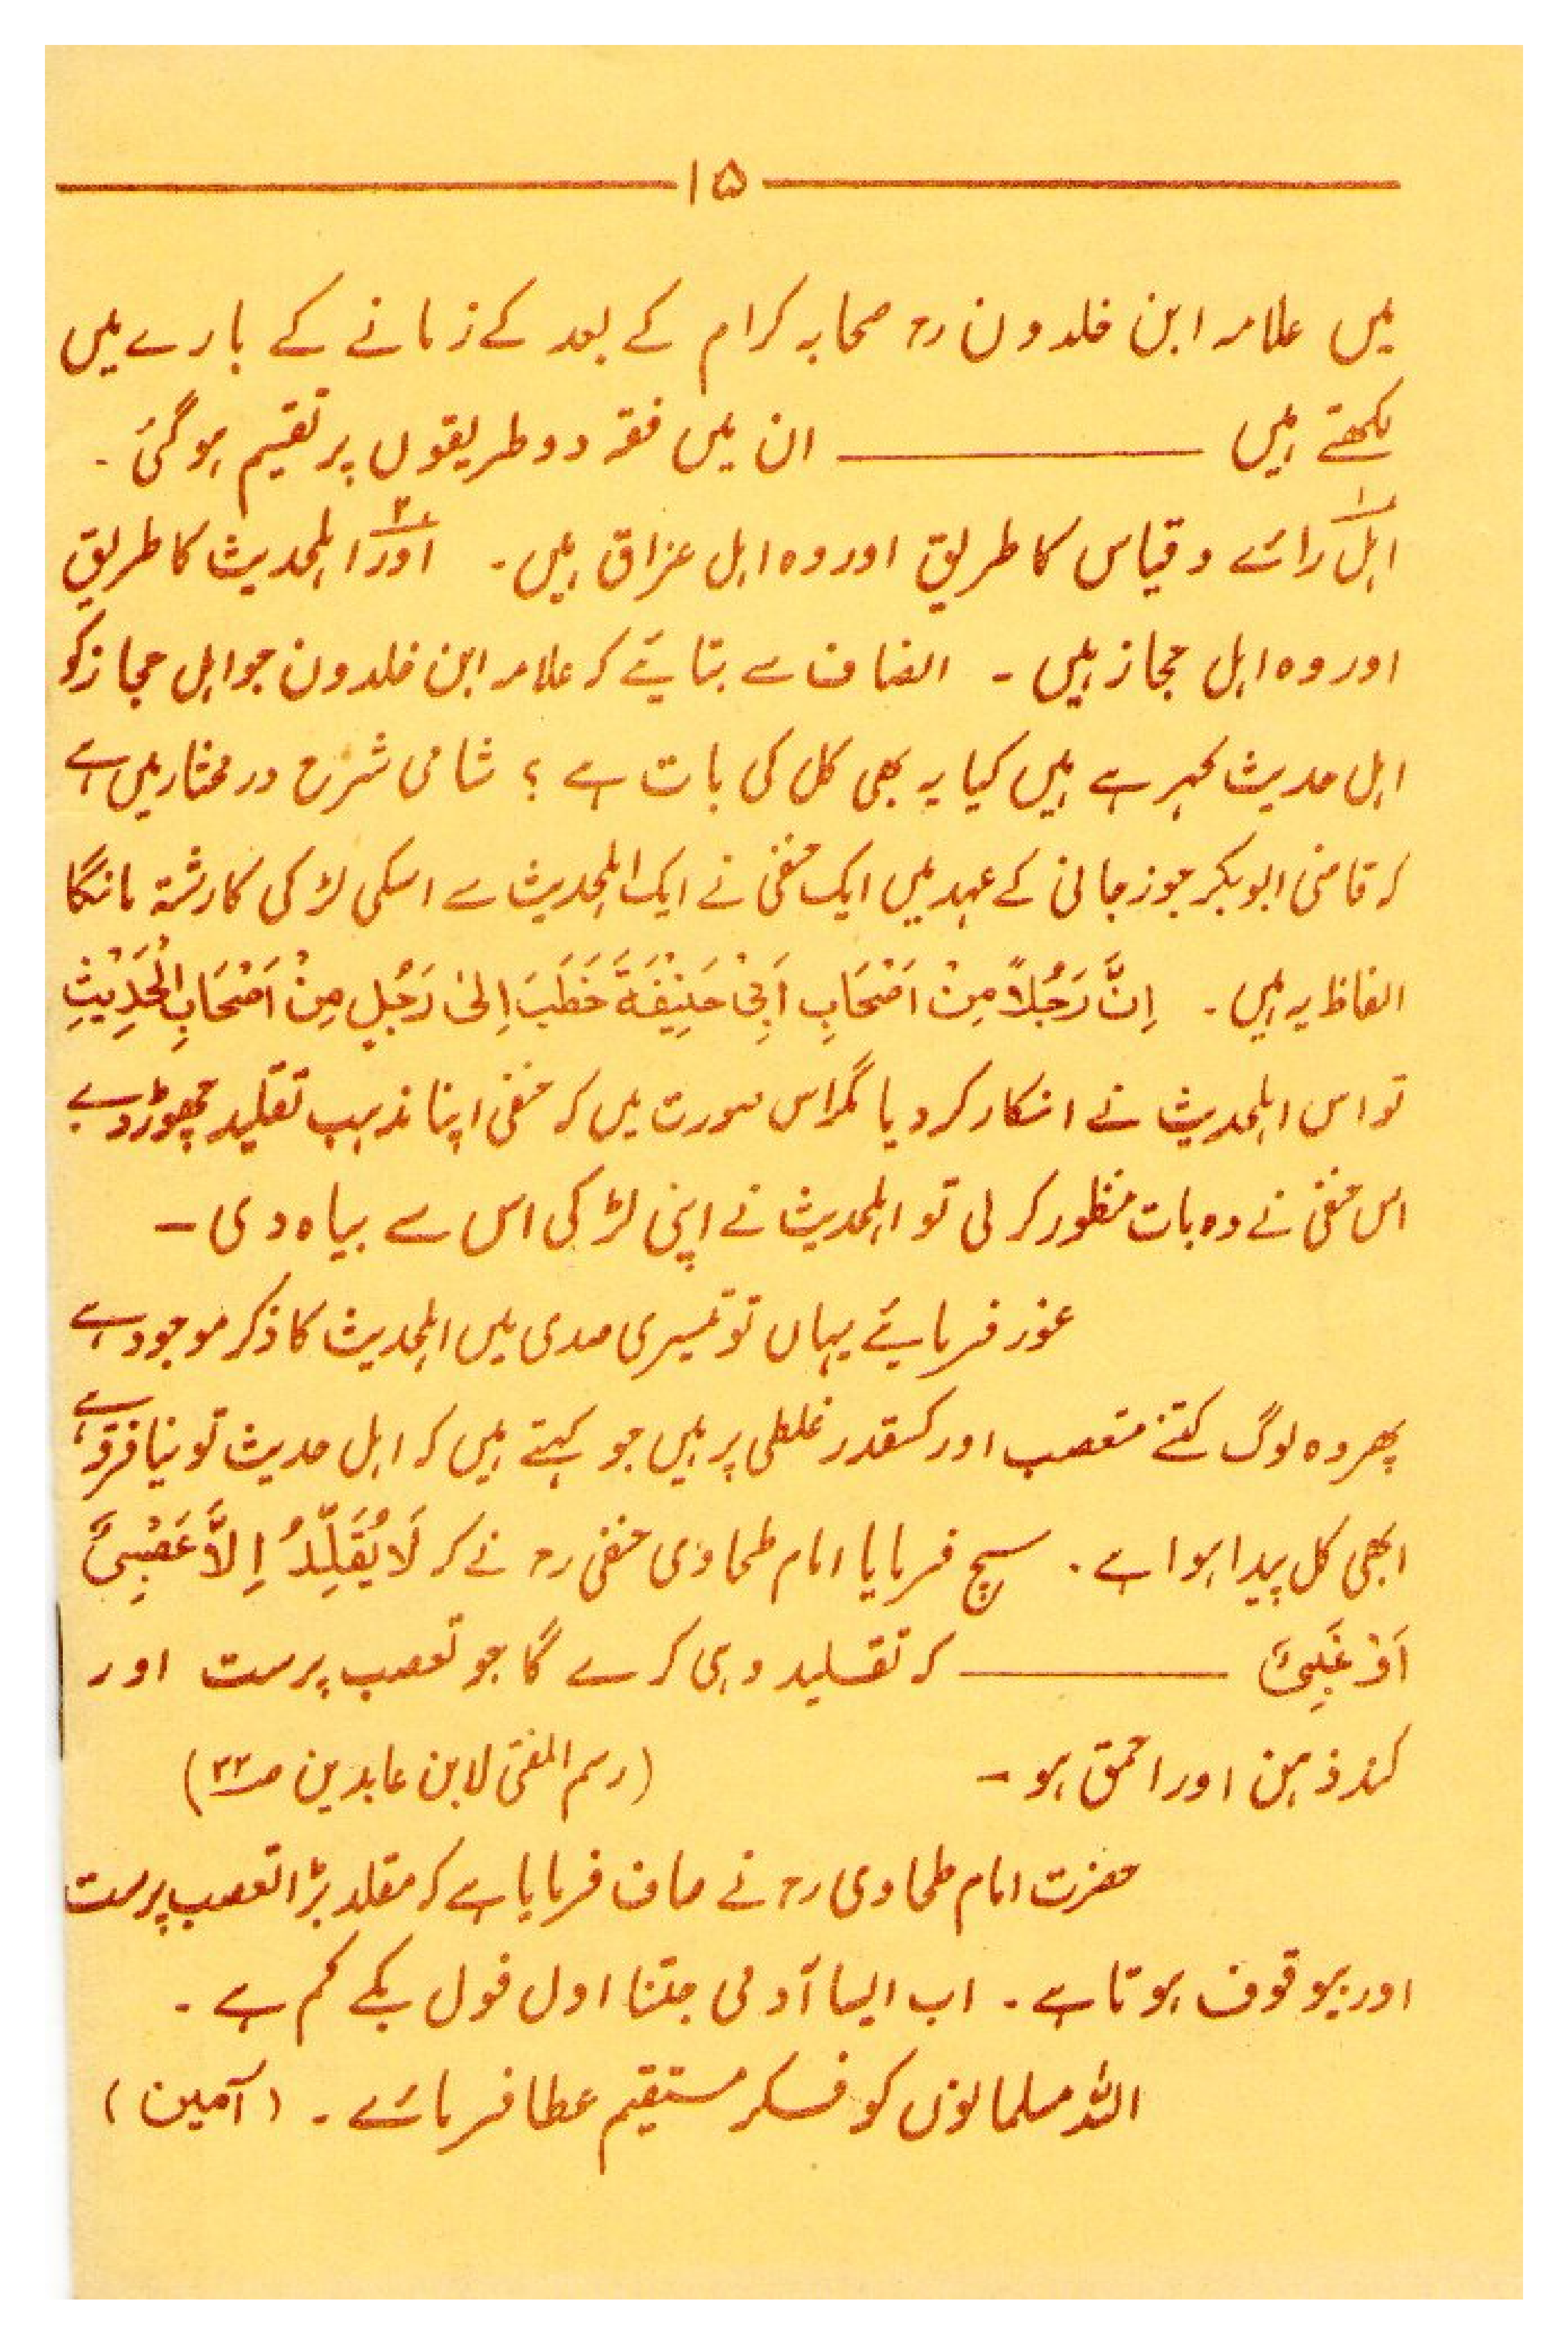 ۱۵
میں علامہ ابن خلدون رح صحابہ کرام کے بعد کے زمانے کے بارے میں
لکھتے ہیں ــــــــ ان میں فقہ دو طریقوں پر تقسیم ہو گئی ۔
۱؎ اہل رائے و قیاس کا طریق اور وہ اہل عراق ہیں ۔ ۲؎ اور اہلحدیث کا طریق
اور وہ اہل حجاز ہیں ۔ انصاف سے بتائیے کہ علامہ ابن خلدون جو اہل حجاز کو
اہل حدیث کہہ رہے ہیں کیا یہ بھی کل کی بات ہے ؟ شامی شرح در مختار میں ہے
کہ قاضی ابوبکر جوزجانی کے عہد میں ایک حنفی نے ایک اہلحدیث سے اسکی لڑکی کا رشتہ مانگا
الفاظ یہ ہیں ۔ اِنَّ رَجُلاً مِنْ اَصْحَابِ اَبِیْ حَنِیْفَةَ خَطَبَ اِلیٰ رَجُلٍ مِنْ اَصْحَابِ الْحَدِیْثِ
تو اس اہلحدیث نے انکار کر دیا مگر اس صورت میں کہ حنفی اپنا مذہب تقلید چھوڑ دے
اس حنفی نے وہ بات منظور کر لی تو اہلحدیث نے اپنی لڑکی اس سے بیاہ دی ۔
غور فرمایئے یہاں تو تیسری صدی میں اہلحدیث کا ذکر موجود ہے
پھر وہ لوگ کتنے متعصب اور کسقدر غلطی پر ہیں جو کہتے ہیں کہ اہل حدیث تو نیا فرقہ ہے
ابھی کل پیدا ہوا ہے ۔ سچ فرمایا امام طحاوی حنفی رح نے کہ لَا یُقَلِّدُ اِلاَّ عَصَبِیٌّ
اَوْ غَبِیٌّ ــــــــ کہ تقلید وہی کرے گا جو تعصب پرست اور
کند ذہن اور احمق ہو ۔ (رسم المفتی لابن عابدین صـ ۳۲)
حضرت امام طحاوی رح نے صاف فرمایا ہے کہ مقلد بڑا تعصب پرست
اور بیوقوف ہوتا ہے ۔ اب ایسا آدمی جتنا اول فول بکے کم ہے ۔
اللہ مسلمانوں کو فکر مستقیم عطا فرمائے ۔ (آمین)